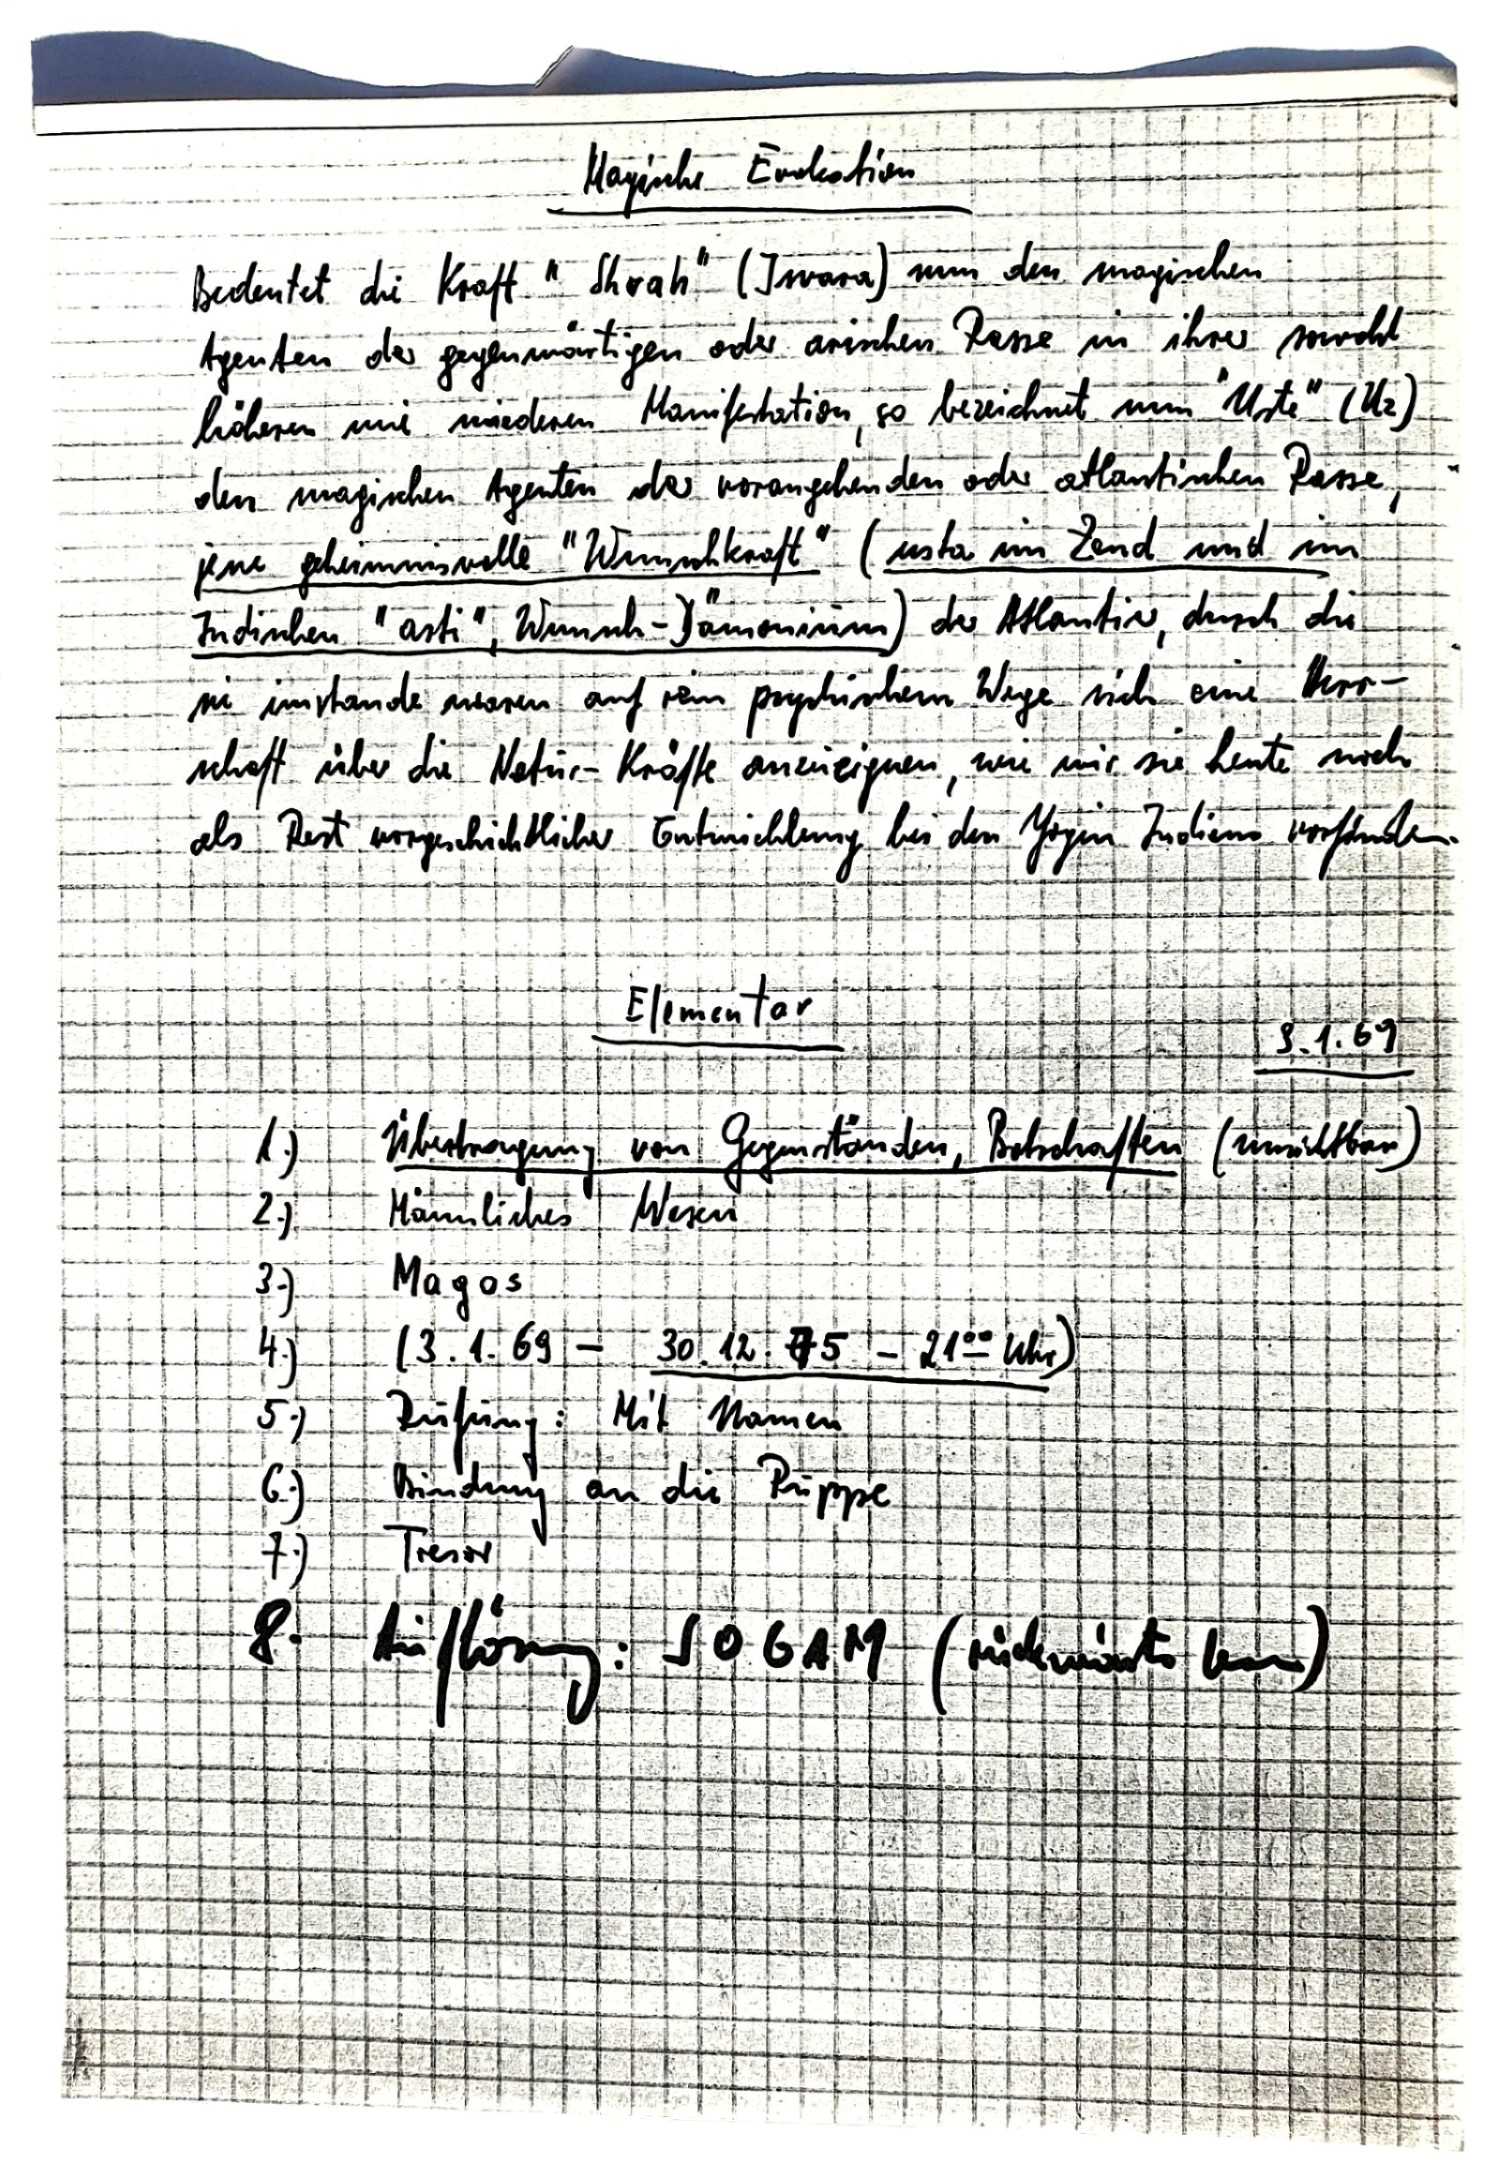 Magische Evokation
Bedeutet die Kraft "Shrah" (Isvara) nun den magischen
Agenten der gegenwärtigen oder arischen Rasse in ihrer sowohl
höheren wie niederen Manifestation, so bezeichnet nun "Uste" (Uz)
den magischen Agenten der vorangehenden oder atlantischen Rasse,
jene geheimnisvolle "Wunschkraft" (usta im Zend und im
Indischen "asti", Wunsch-Dämonium) der Atlantier, durch die
sie imstande waren auf rein psychischem Wege sich eine Herr-
schaft über die Natur-Kräfte anzueignen, wie wir sie heute noch
als Rest vorgeschichtlicher Entwicklung bei den Yogin Indiens vorfinden.
Elementar
3.1.69
1.) Übertragung von Gegenständen, Botschaften (unsichtbar)
2.) Männliches Wesen
3.) Magos
4.) (3.1.69 - 30.12.75 - 21°° Uhr)
5.) Rufung: Mit Namen
6.) Bindung an die Puppe
7.) Tresor
8. Auflösung: SOGAM (rückwärts lesen)